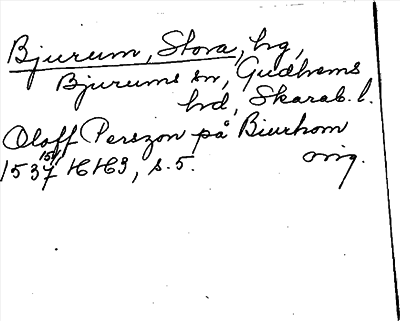 Bjurum, Stora, hg,
Bjurums sn, Gudhems
hd, Skarab. l.
Oloff Perszon på Biurhom
1537 16/6 HH3, s. 5. orig.